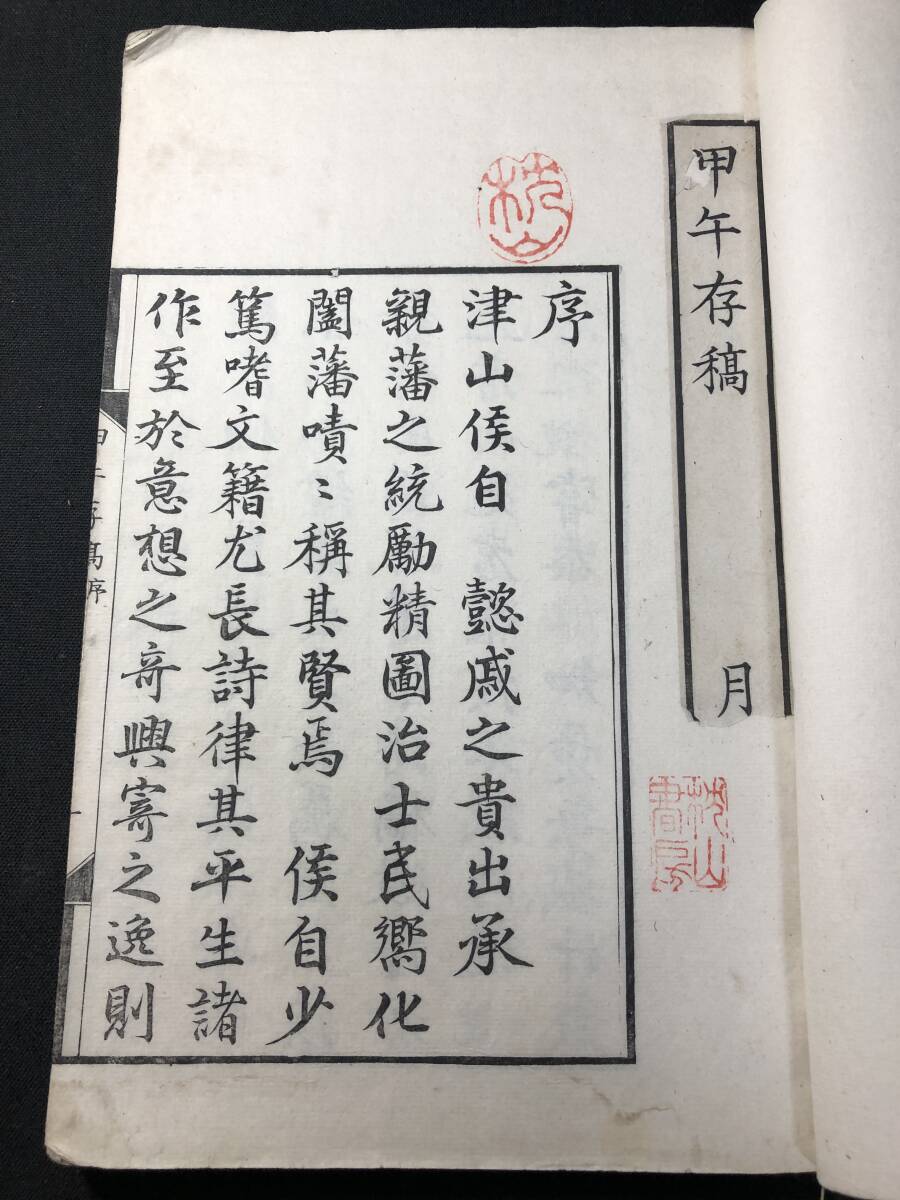 甲午存稿
月
序
津山侯自 懿戚之貴出承
親藩之統勵精圖治士民嚮化
闔藩嘖〻稱其賢焉 侯自少
篤嗜文籍尤長詩律其平生諸
作至於意想之奇興寄之逸則
甲午存稿序
一